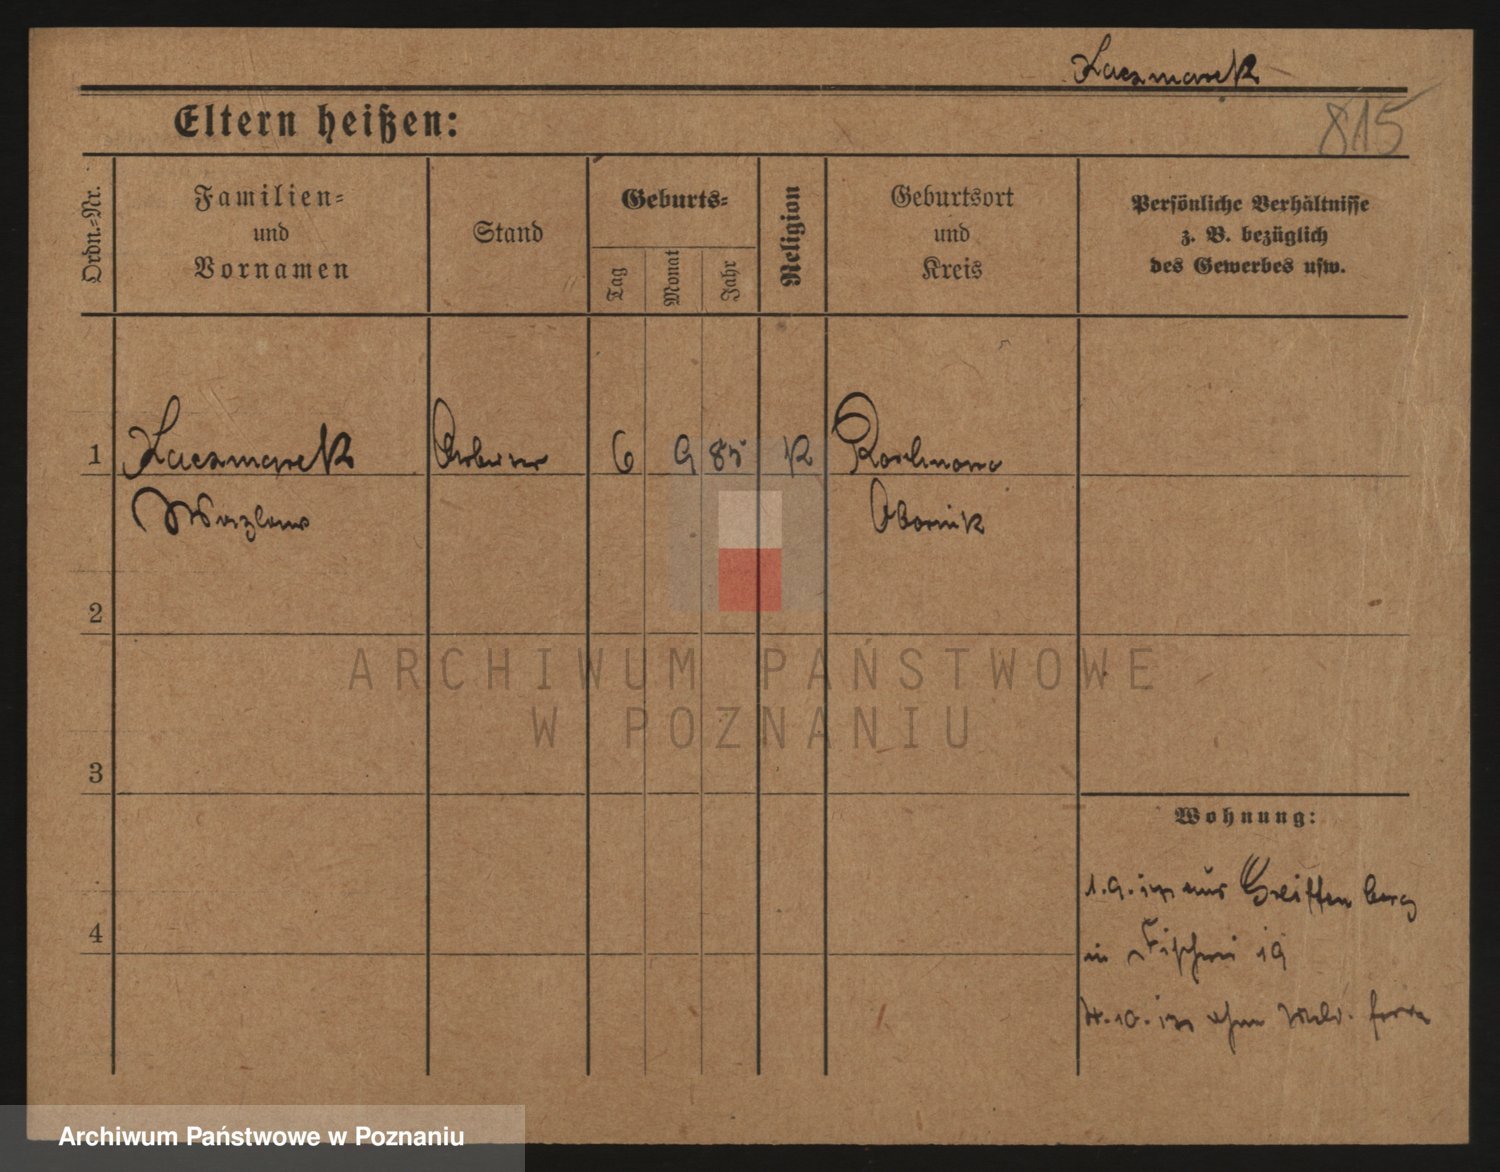 Kaczmarek
815
Eltern heißen:
Ordn.-Nr.
Familien-
und
Vornamen
Stand
Geburts-
Tag
Monat
Jahr
Religion
Geburtsort
und
Kreis
Persönliche Verhältnisse
z. B. bezüglich
des Gewerbes usw.
1 Kaczmarek Arbeiter 6 9 85 K
Wazlaw Obornik
2
ARCHIWUM PAŃSTWOWE
W POZNANIU
3
Wohnung:
1.9. aus Greiffenberg
4
in Fischerei 19
4.10. ohne Meld.
Archiwum Państwowe w Poznaniu